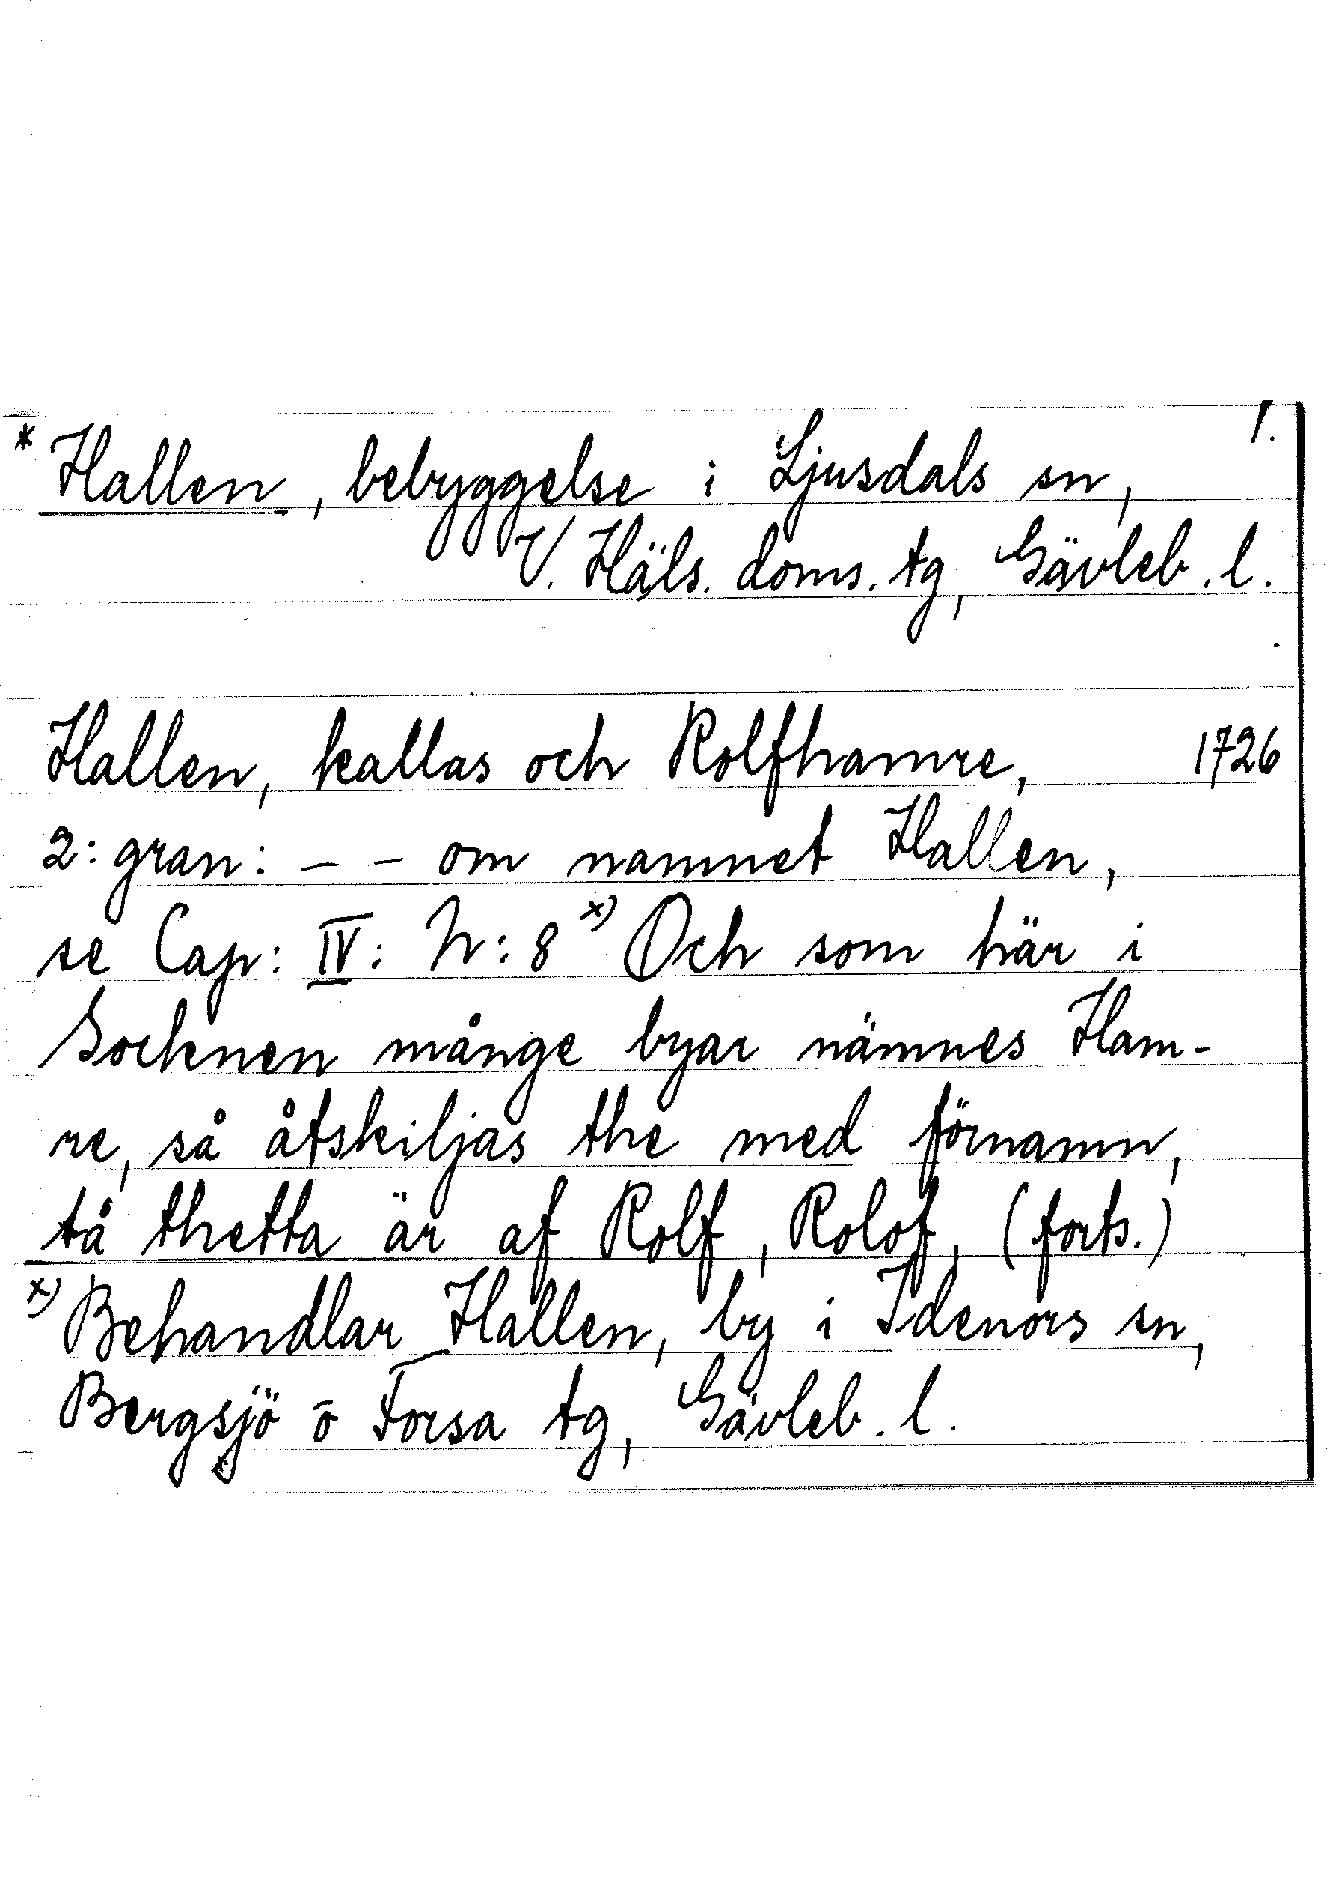 1.
* Hallen, bebyggelse i Ljusdals sn,
V. Häls. doms. tg, Gävleb. l.
Hallen, kallas och Rolfhamre, 1726
2: gran: – – om namnet Hallen,
se Cap: IV: N: 8 x) Och som här i
Socknen månge byar nämnes Ham-
re, så åtskiljas the med förnamn,
tå thetta är af Rolf, Rolof, (forts.)
x) Behandlar Hallen, by i Idenors sn,
Bergsjö o Forsa tg, Gävleb. l.